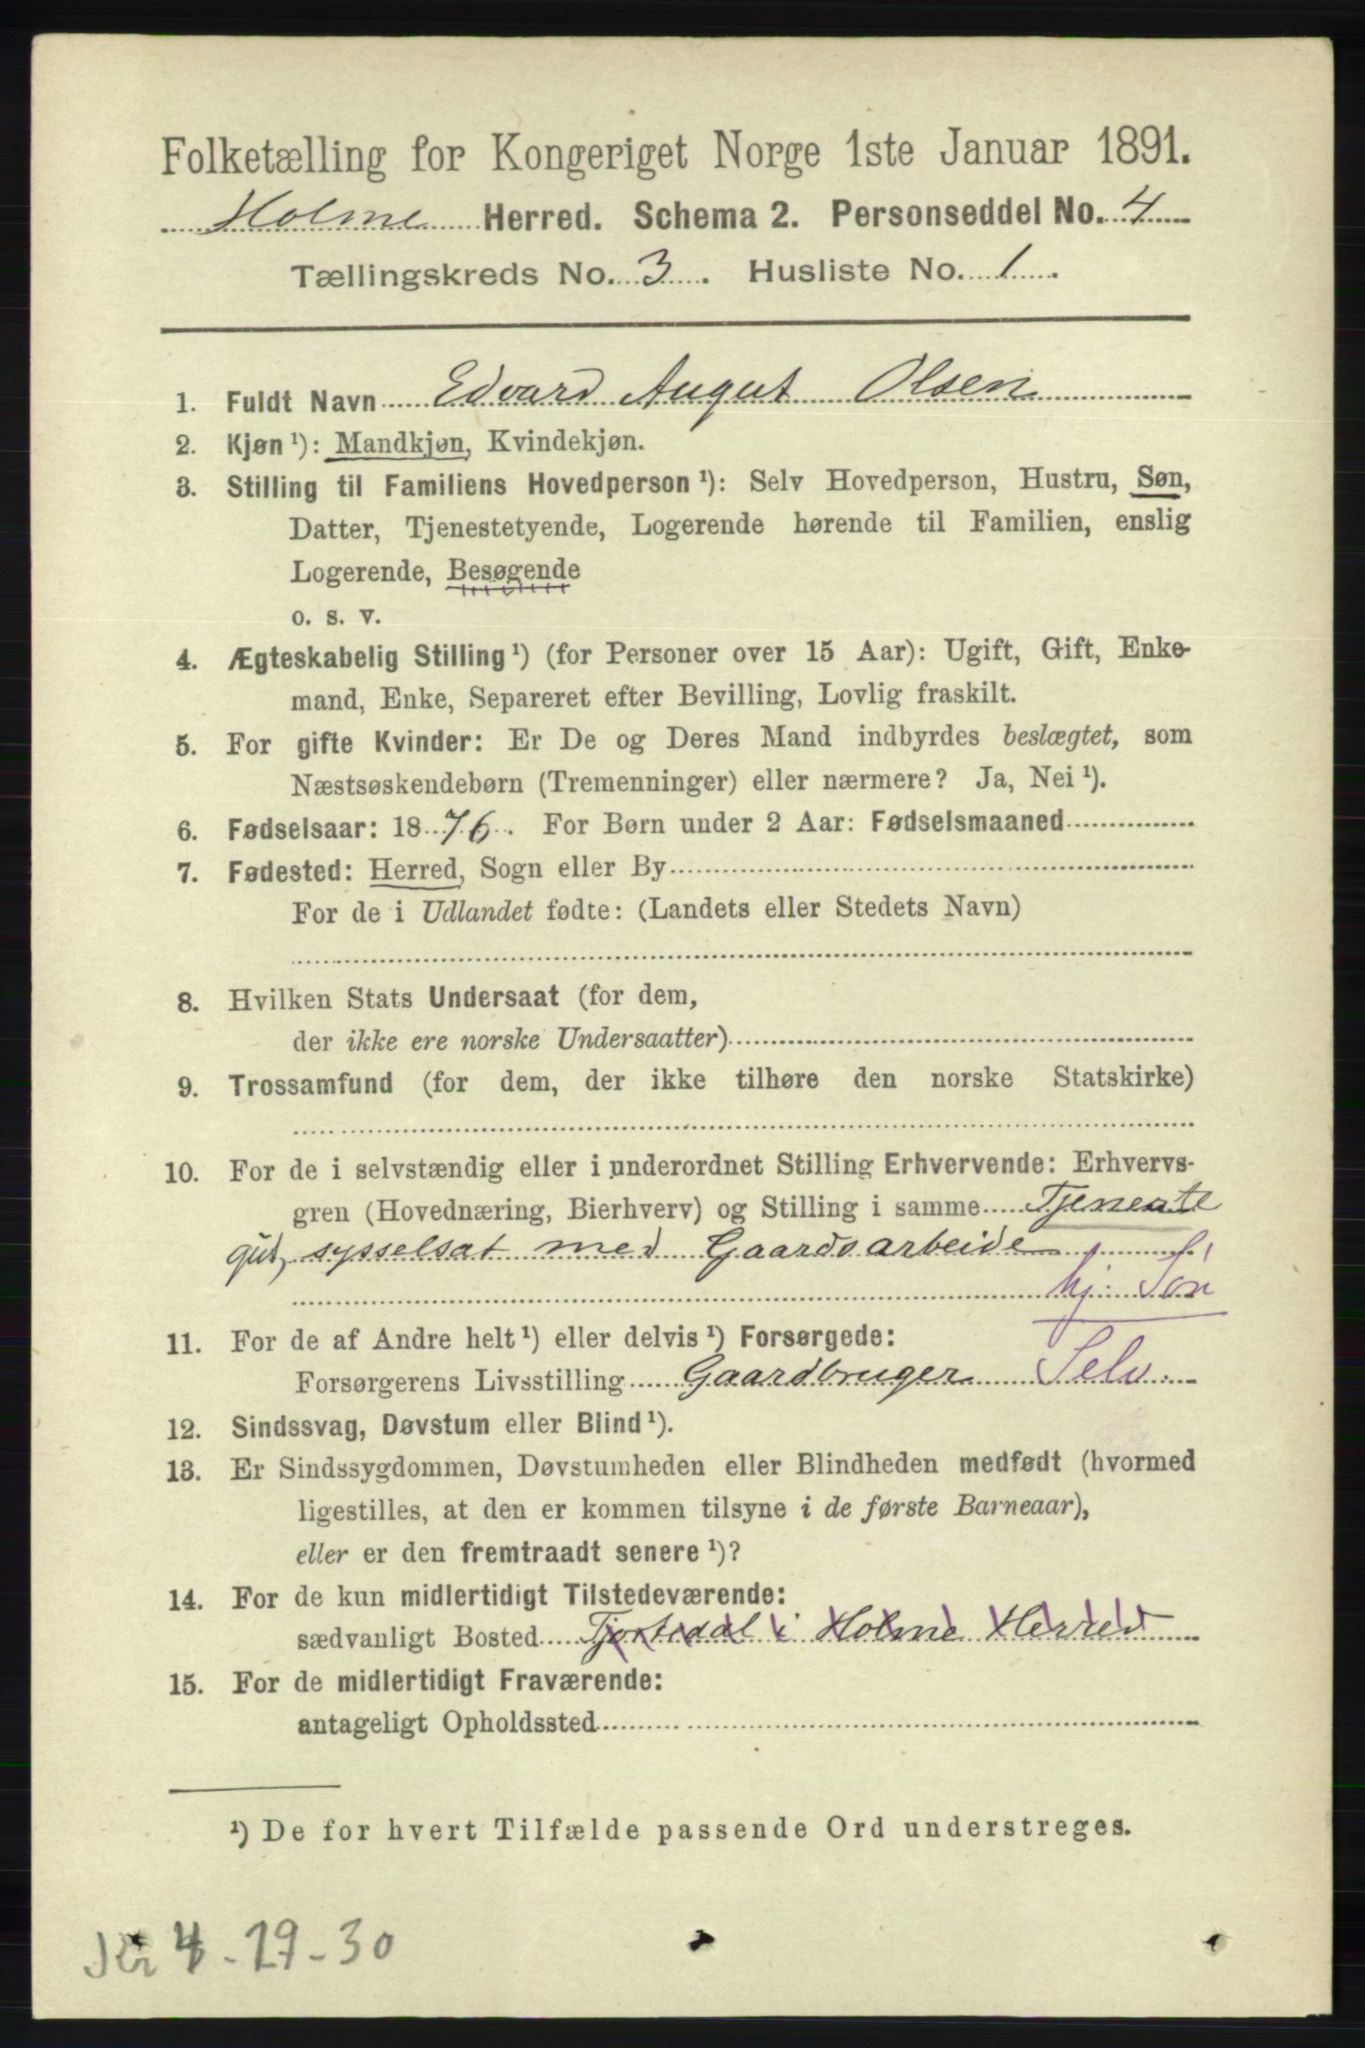 Folketælling for Kongeriget Norge 1ste Januar 1891.
Holme Herred. Schema 2. Personseddel No. 4
Tællingskreds No. 3. Husliste No. 1.
1. Fuldt Navn Edvard August Olsen
2. Kjøn ¹): Mandkjøn, Kvindekjøn.
3. Stilling til Familiens Hovedperson ¹): Selv Hovedperson, Hustru, Søn,
Datter, Tjenestetyende, Logerende hørende til Familien, enslig
Logerende, Besøgende
o. s. v.
4. Ægteskabelig Stilling ¹) (for Personer over 15 Aar): Ugift, Gift, Enke-
mand, Enke, Separeret efter Bevilling, Lovlig fraskilt.
5. For gifte Kvinder: Er De og Deres Mand indbyrdes beslægtet, som
Næstsøskendebørn (Tremenninger) eller nærmere? Ja, Nei ¹).
6. Fødselsaar: 1876. For Børn under 2 Aar: Fødselsmaaned
7. Fødested: Herred, Sogn eller By
For de i Udlandet fødte: (Landets eller Stedets Navn)
8. Hvilken Stats Undersaat (for dem,
der ikke ere norske Undersaatter)
9. Trossamfund (for dem, der ikke tilhøre den norske Statskirke)
10. For de i selvstændig eller i underordnet Stilling Erhvervende: Erhvervs-
gren (Hovednæring, Bierhverv) og Stilling i samme Tjeneste
gut, sysselsat med Gaardsarbeide
hj. Søn
11. For de af Andre helt ¹) eller delvis ¹) Forsørgede:
Forsørgerens Livsstilling Gaardbruger Selv.
12. Sindssvag, Døvstum eller Blind ¹).
13. Er Sindssygdommen, Døvstumheden eller Blindheden medfødt (hvormed
ligestilles, at den er kommen tilsyne i de første Barneaar),
eller er den fremtraadt senere ¹)?
14. For de kun midlertidigt Tilstedeværende:
sædvanligt Bosted Tjortedal i Holme Herred
15. For de midlertidigt Fraværende:
antageligt Opholdssted
¹) De for hvert Tilfælde passende Ord understreges.
4-29-30